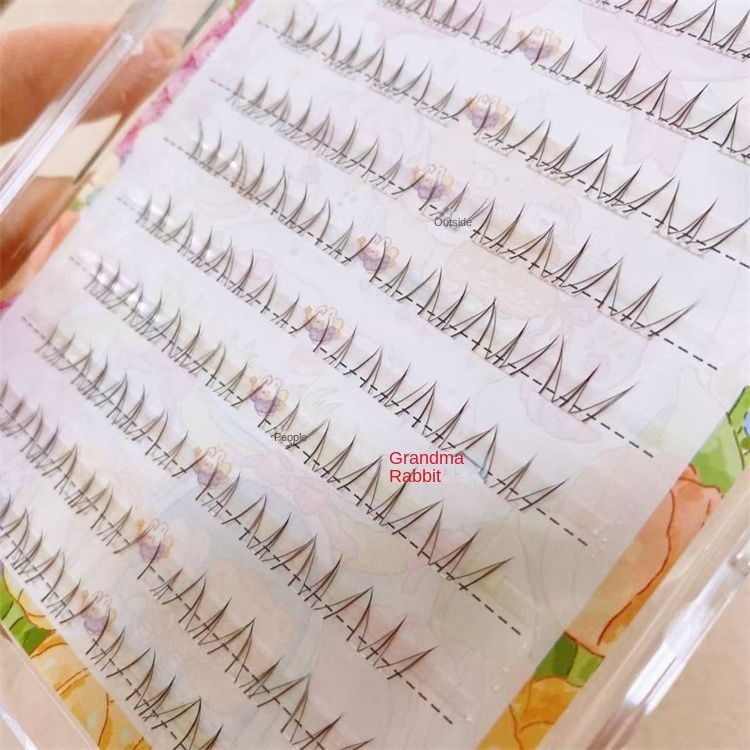 Outside
People
Grandma
Rabbit